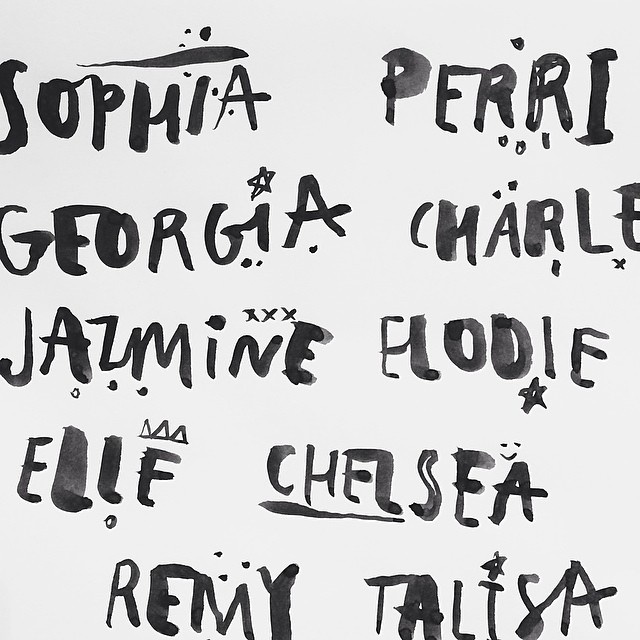 SOPHIA PERRI
GEORGIA CHARLE
JAZMINE ELODIE
ELLE CHELSEA
REMY TALISA